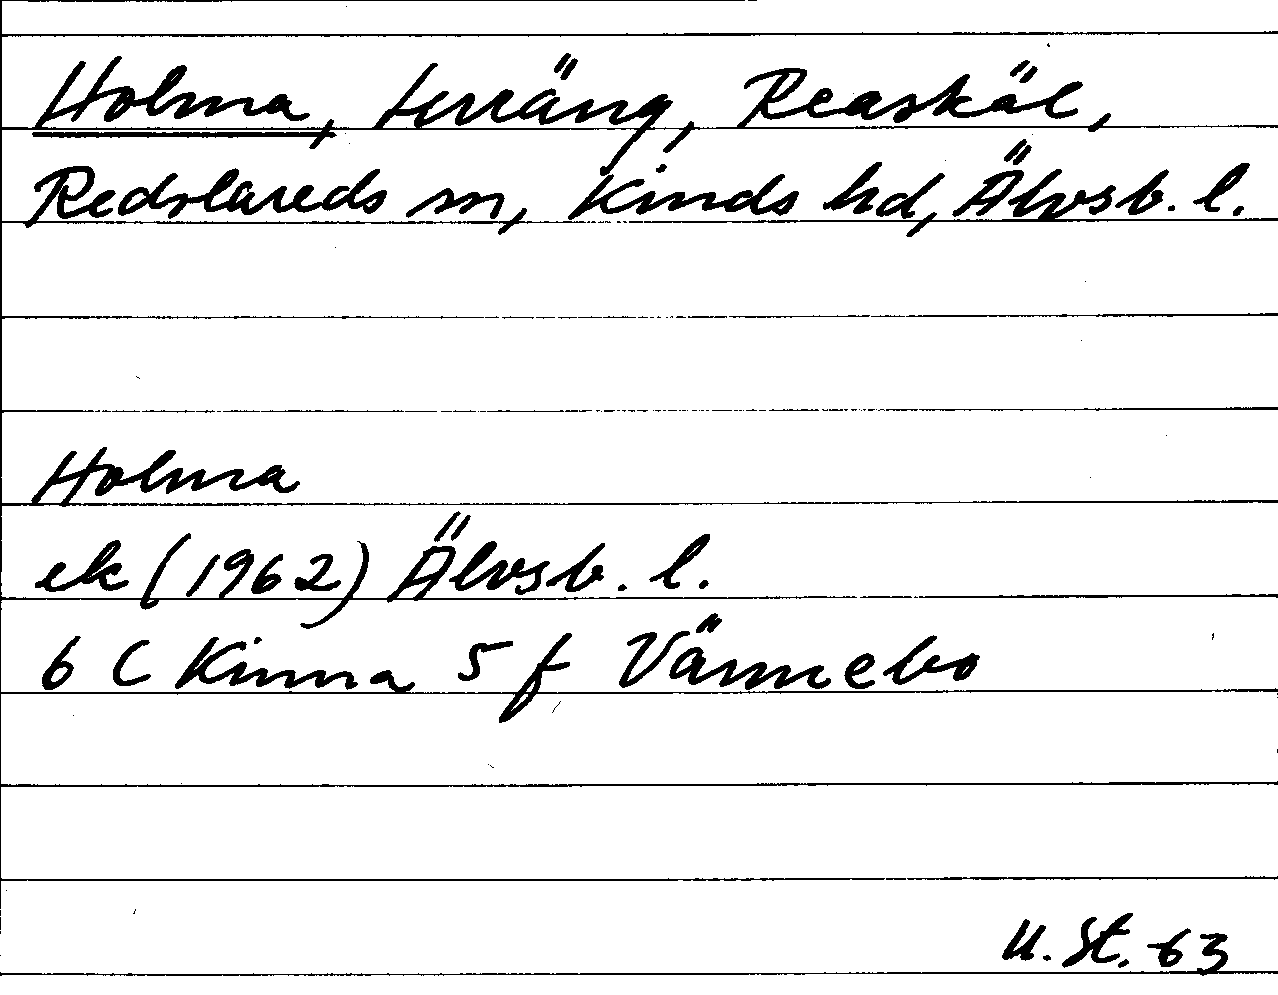 Holma, terräng, Reaskäl,
Redslareds sn, Kinds hd, Älvsb. l.
Holma
ek (1962) Älvsb. l.
6 C Kinna 5 f Värnebo
U. St. -63